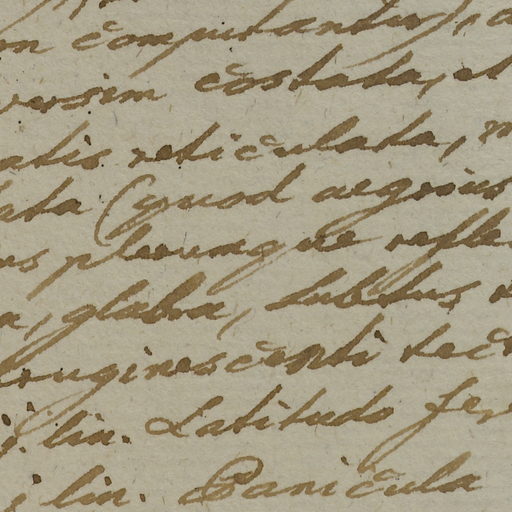 on computantur), a
versim costata, et
atis reticulata, m
lata (quod aegrius
us plerumque refle
a, glabra, subtus
ruginescenti tect
j. lin. Latitudo fe
j lin. Panicula